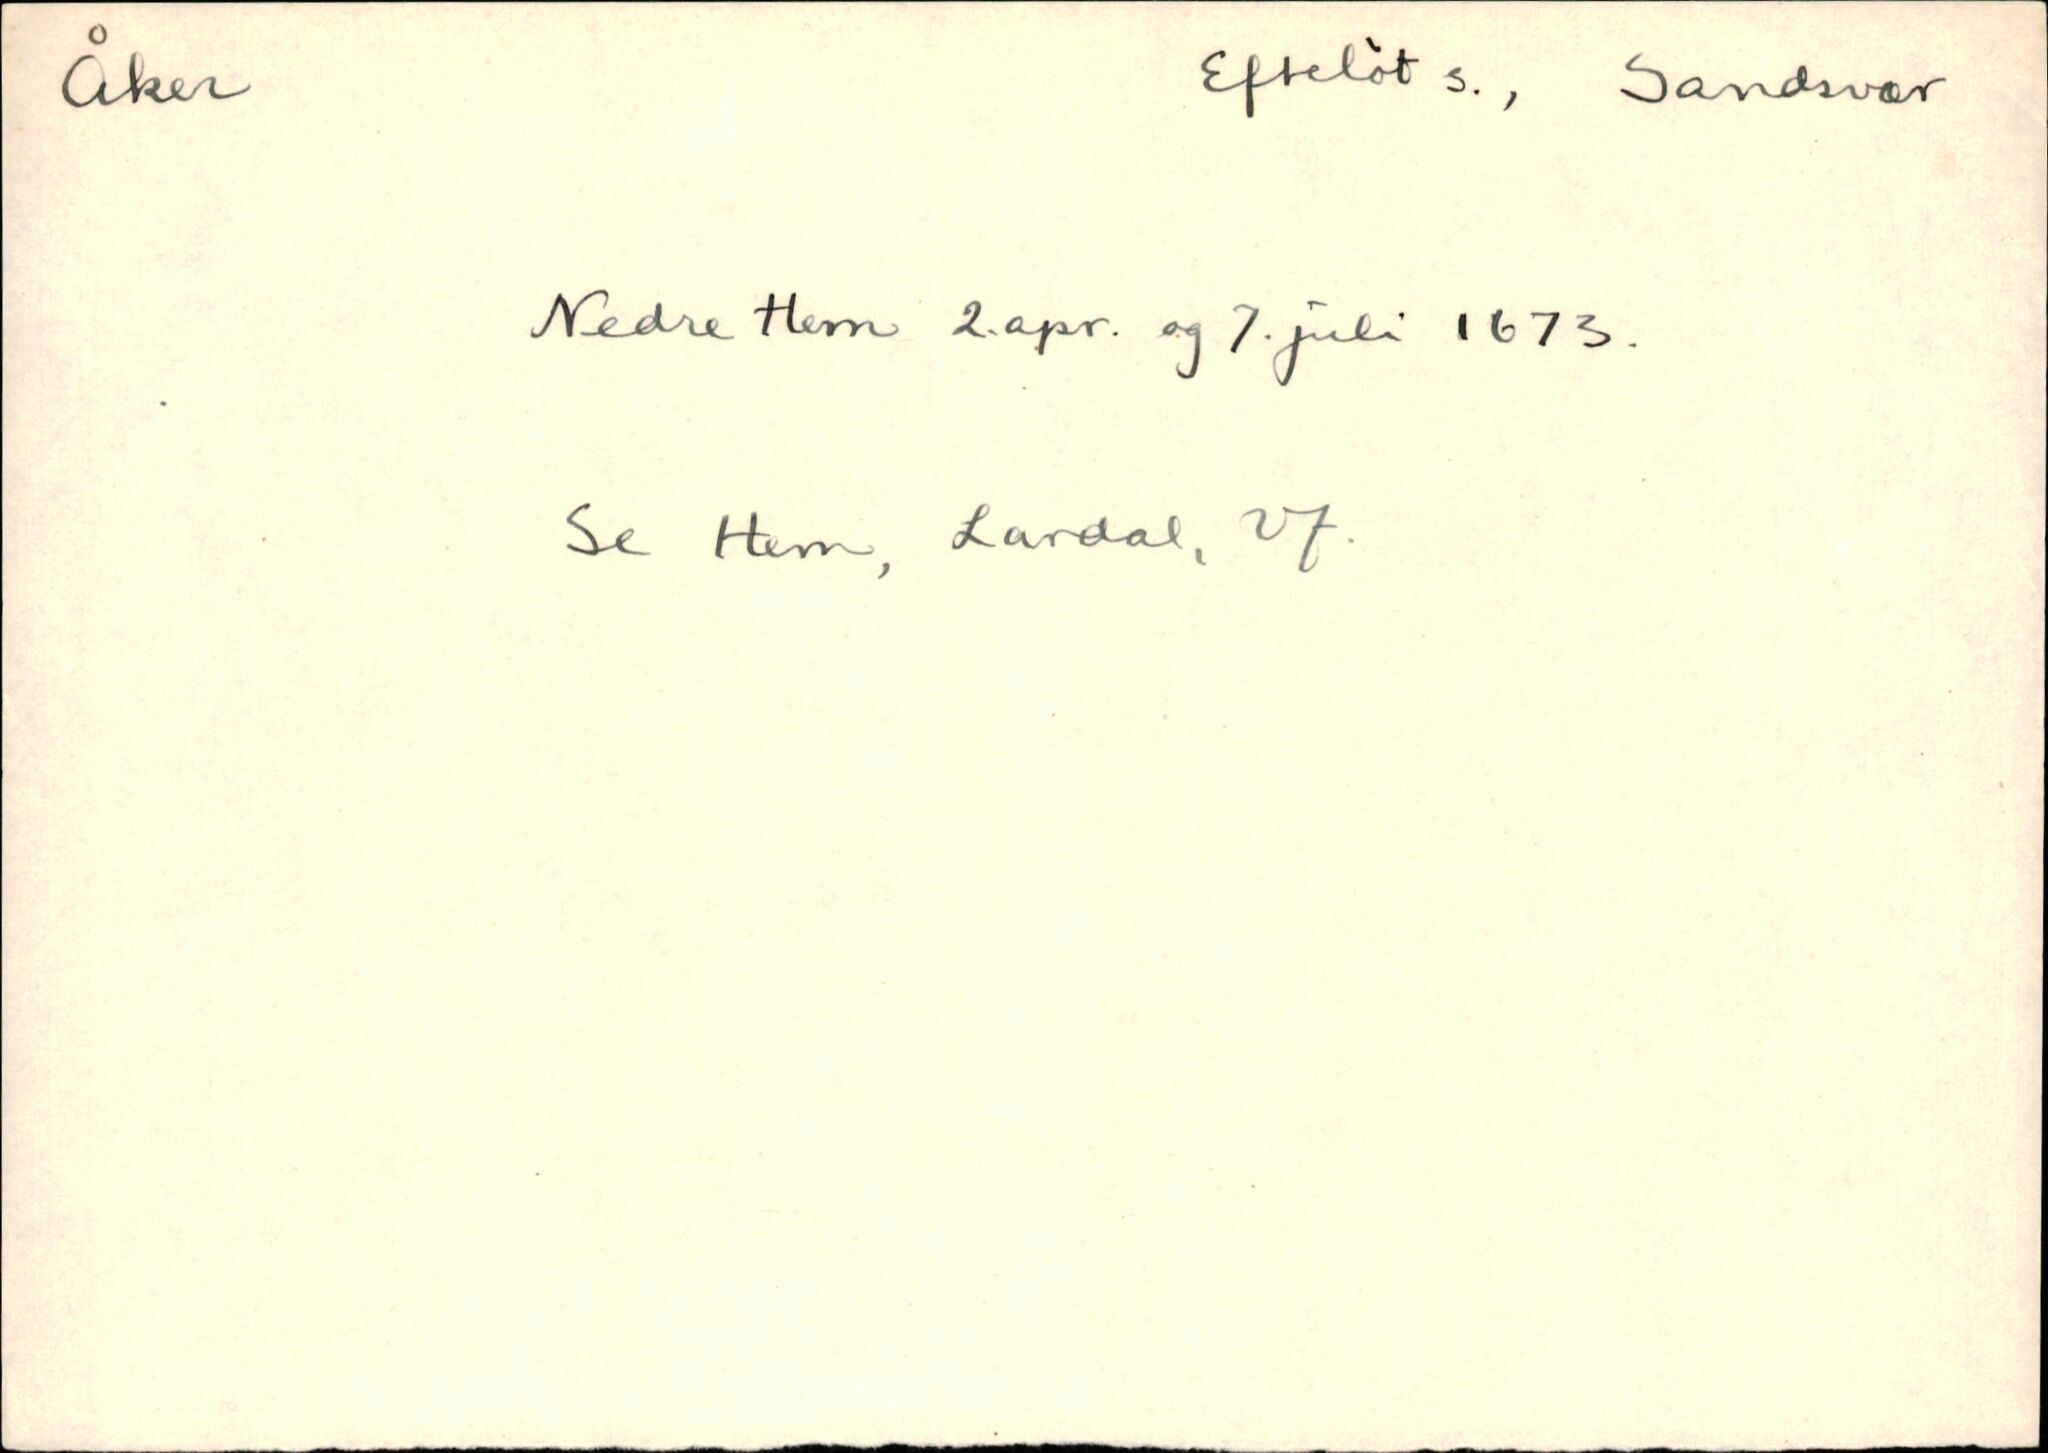 Åker Efteløt s., Sandsvær
Nedre Hem 2. apr. og 7. juli 1673.
Se Hem, Lardal, Vf.